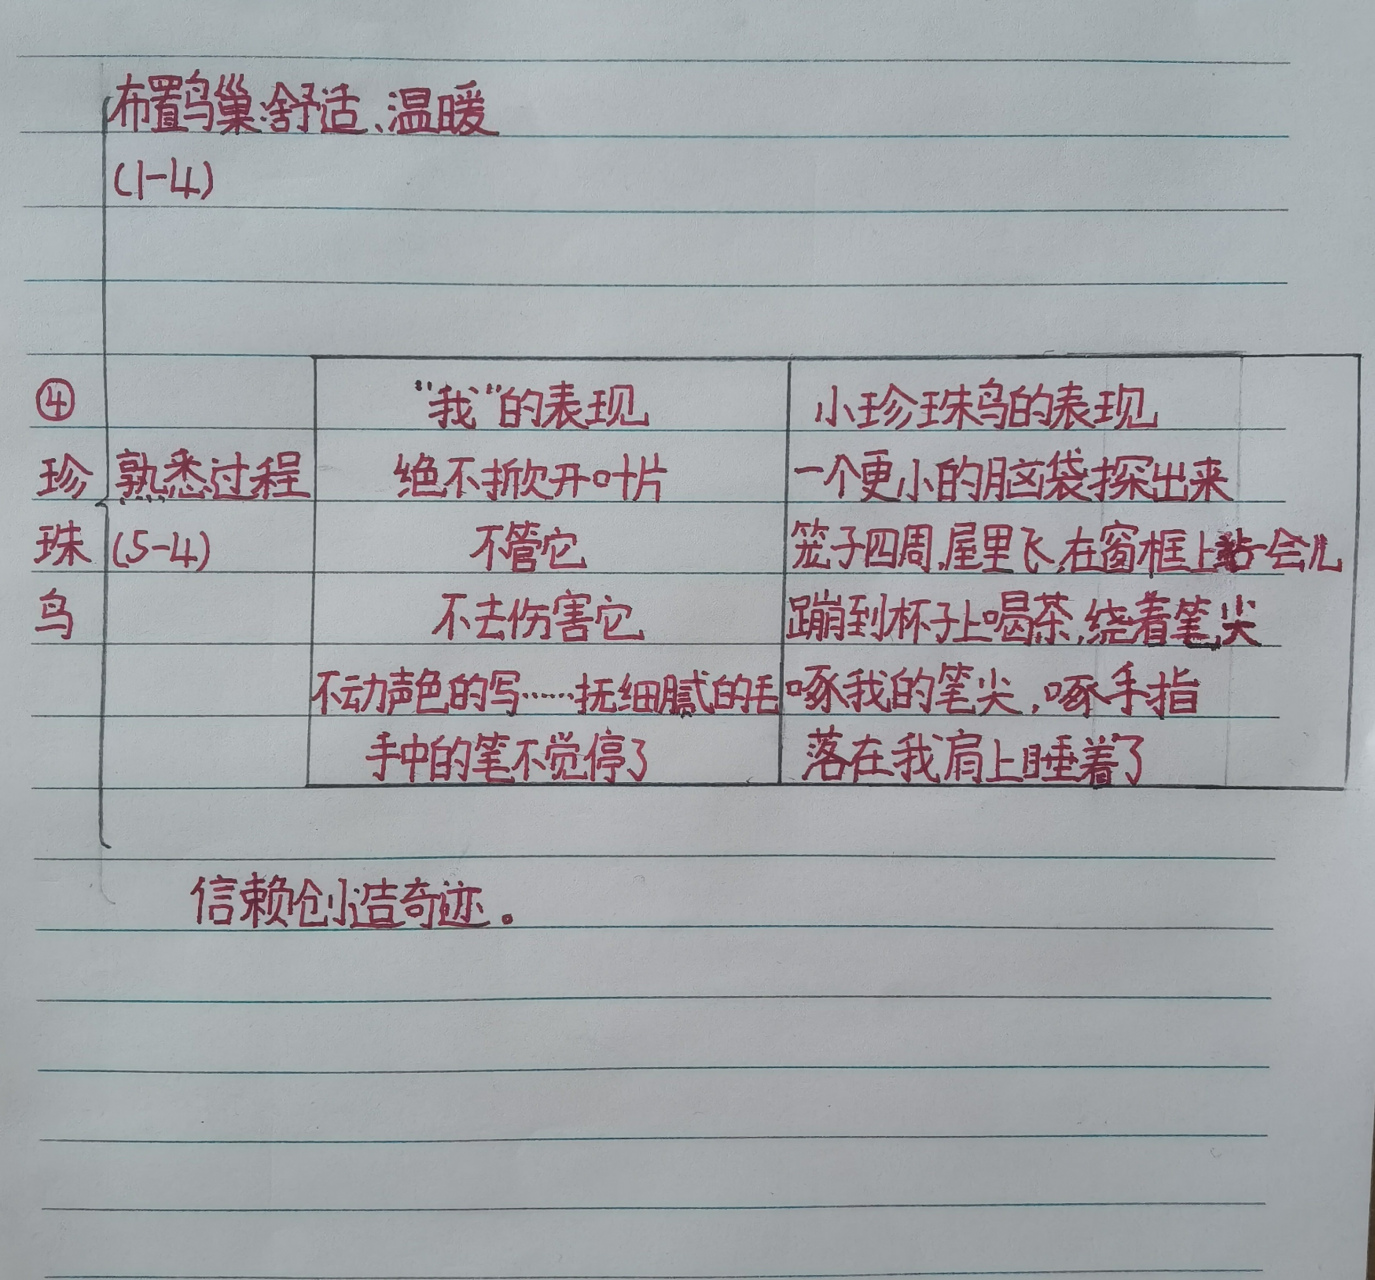 布置鸟巢:舒适、温暖
(1-4)
④ "我"的表现 小珍珠鸟的表现
珍 熟悉过程 绝不掀开叶片 一个更小的脑袋探出来
珠 (5-4) 不管它 笼子四周,屋里飞,在窗框上站一会儿
鸟 不去伤害它 蹦到杯子上喝茶,绕着笔尖
不动声色的写……抚细腻的毛 啄我的笔尖,啄手指
手中的笔不觉停了 落在我肩上睡着了
信赖创造奇迹。